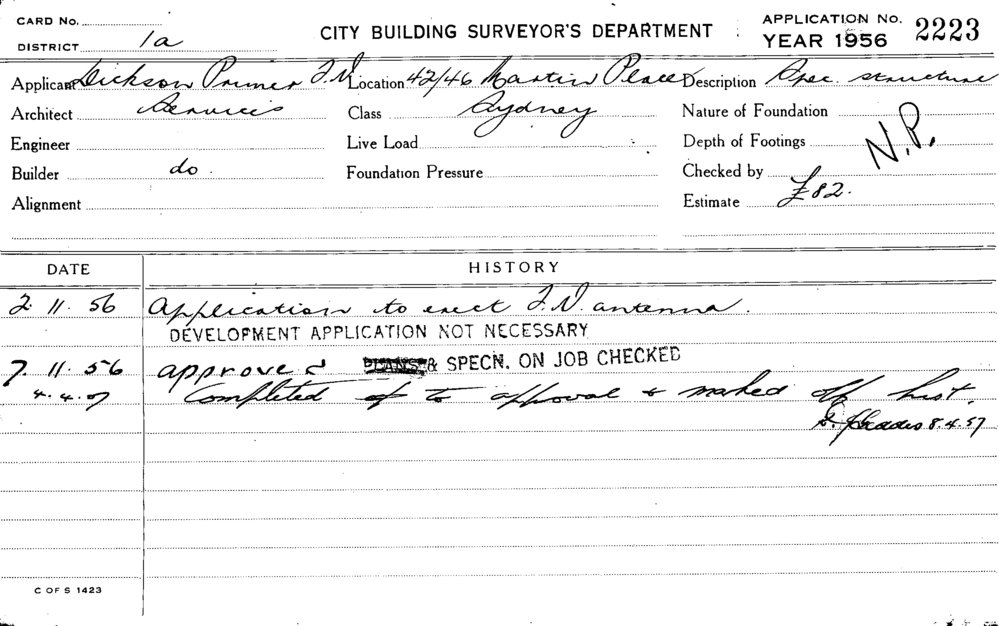 CARD No.
DISTRICT 1a
CITY BUILDING SURVEYOR'S DEPARTMENT
APPLICATION No. 2223
YEAR 1956
Applicant Dickson Primer T.V. Location 42/46 Martin Place Description Spec. structure
Architect Services Class Sydney Nature of Foundation
Engineer Live Load Depth of Footings N.P.
Builder do. Foundation Pressure Checked by
Alignment Estimate £82.
DATE HISTORY
2. 11. 56 Application to erect T.V. antenna.
DEVELOPMENT APPLICATION NOT NECESSARY
7. 11. 56 approved PLANS & SPECN. ON JOB CHECKED
4. 4. 57 Completed to approval & marked off list.
8.4.57
C OF S 1423